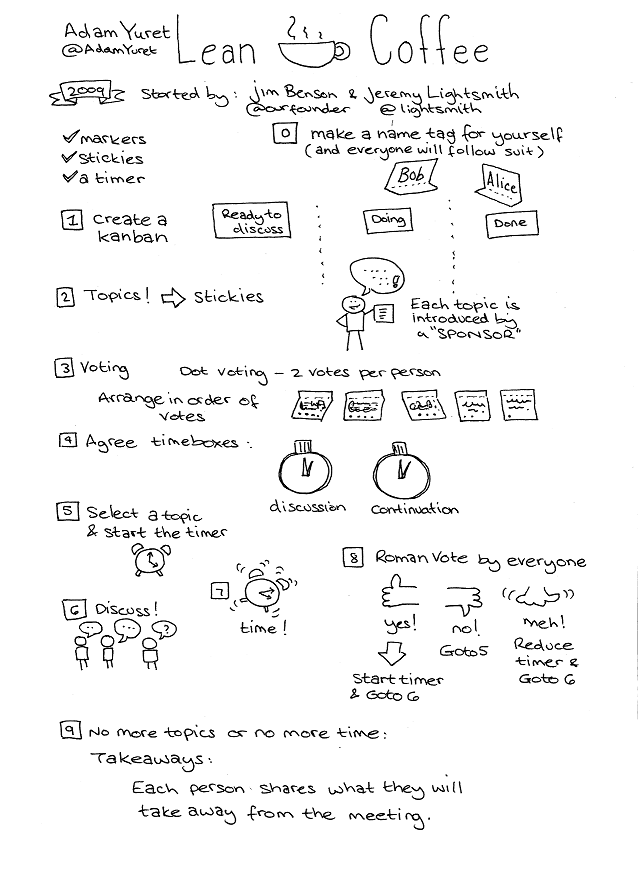 Adam Yuret
@AdamYuret
Lean Coffee
2009 Started by: Jim Benson & Jeremy Lightsmith
@ourfounder @lightsmith
✓markers
✓stickies
✓a timer
0 make a name tag for yourself
(and everyone will follow suit)
Bob
Alice
1 Create a
kanban
Ready to
discuss
Doing
Done
2 Topics! ⇨ stickies
Each topic is
introduced by
a "SPONSOR"
3 Voting Dot voting – 2 votes per person
Arrange in order of
votes
4 Agree timeboxes:
discussion continuation
5 Select a topic
& start the timer
6 Discuss!
7
time!
8 Roman Vote by everyone
yes!
Start timer
& Goto 6
no!
Goto 5
meh!
Reduce
timer &
Goto 6
9 No more topics or no more time:
Takeaways:
Each person shares what they will
take away from the meeting.